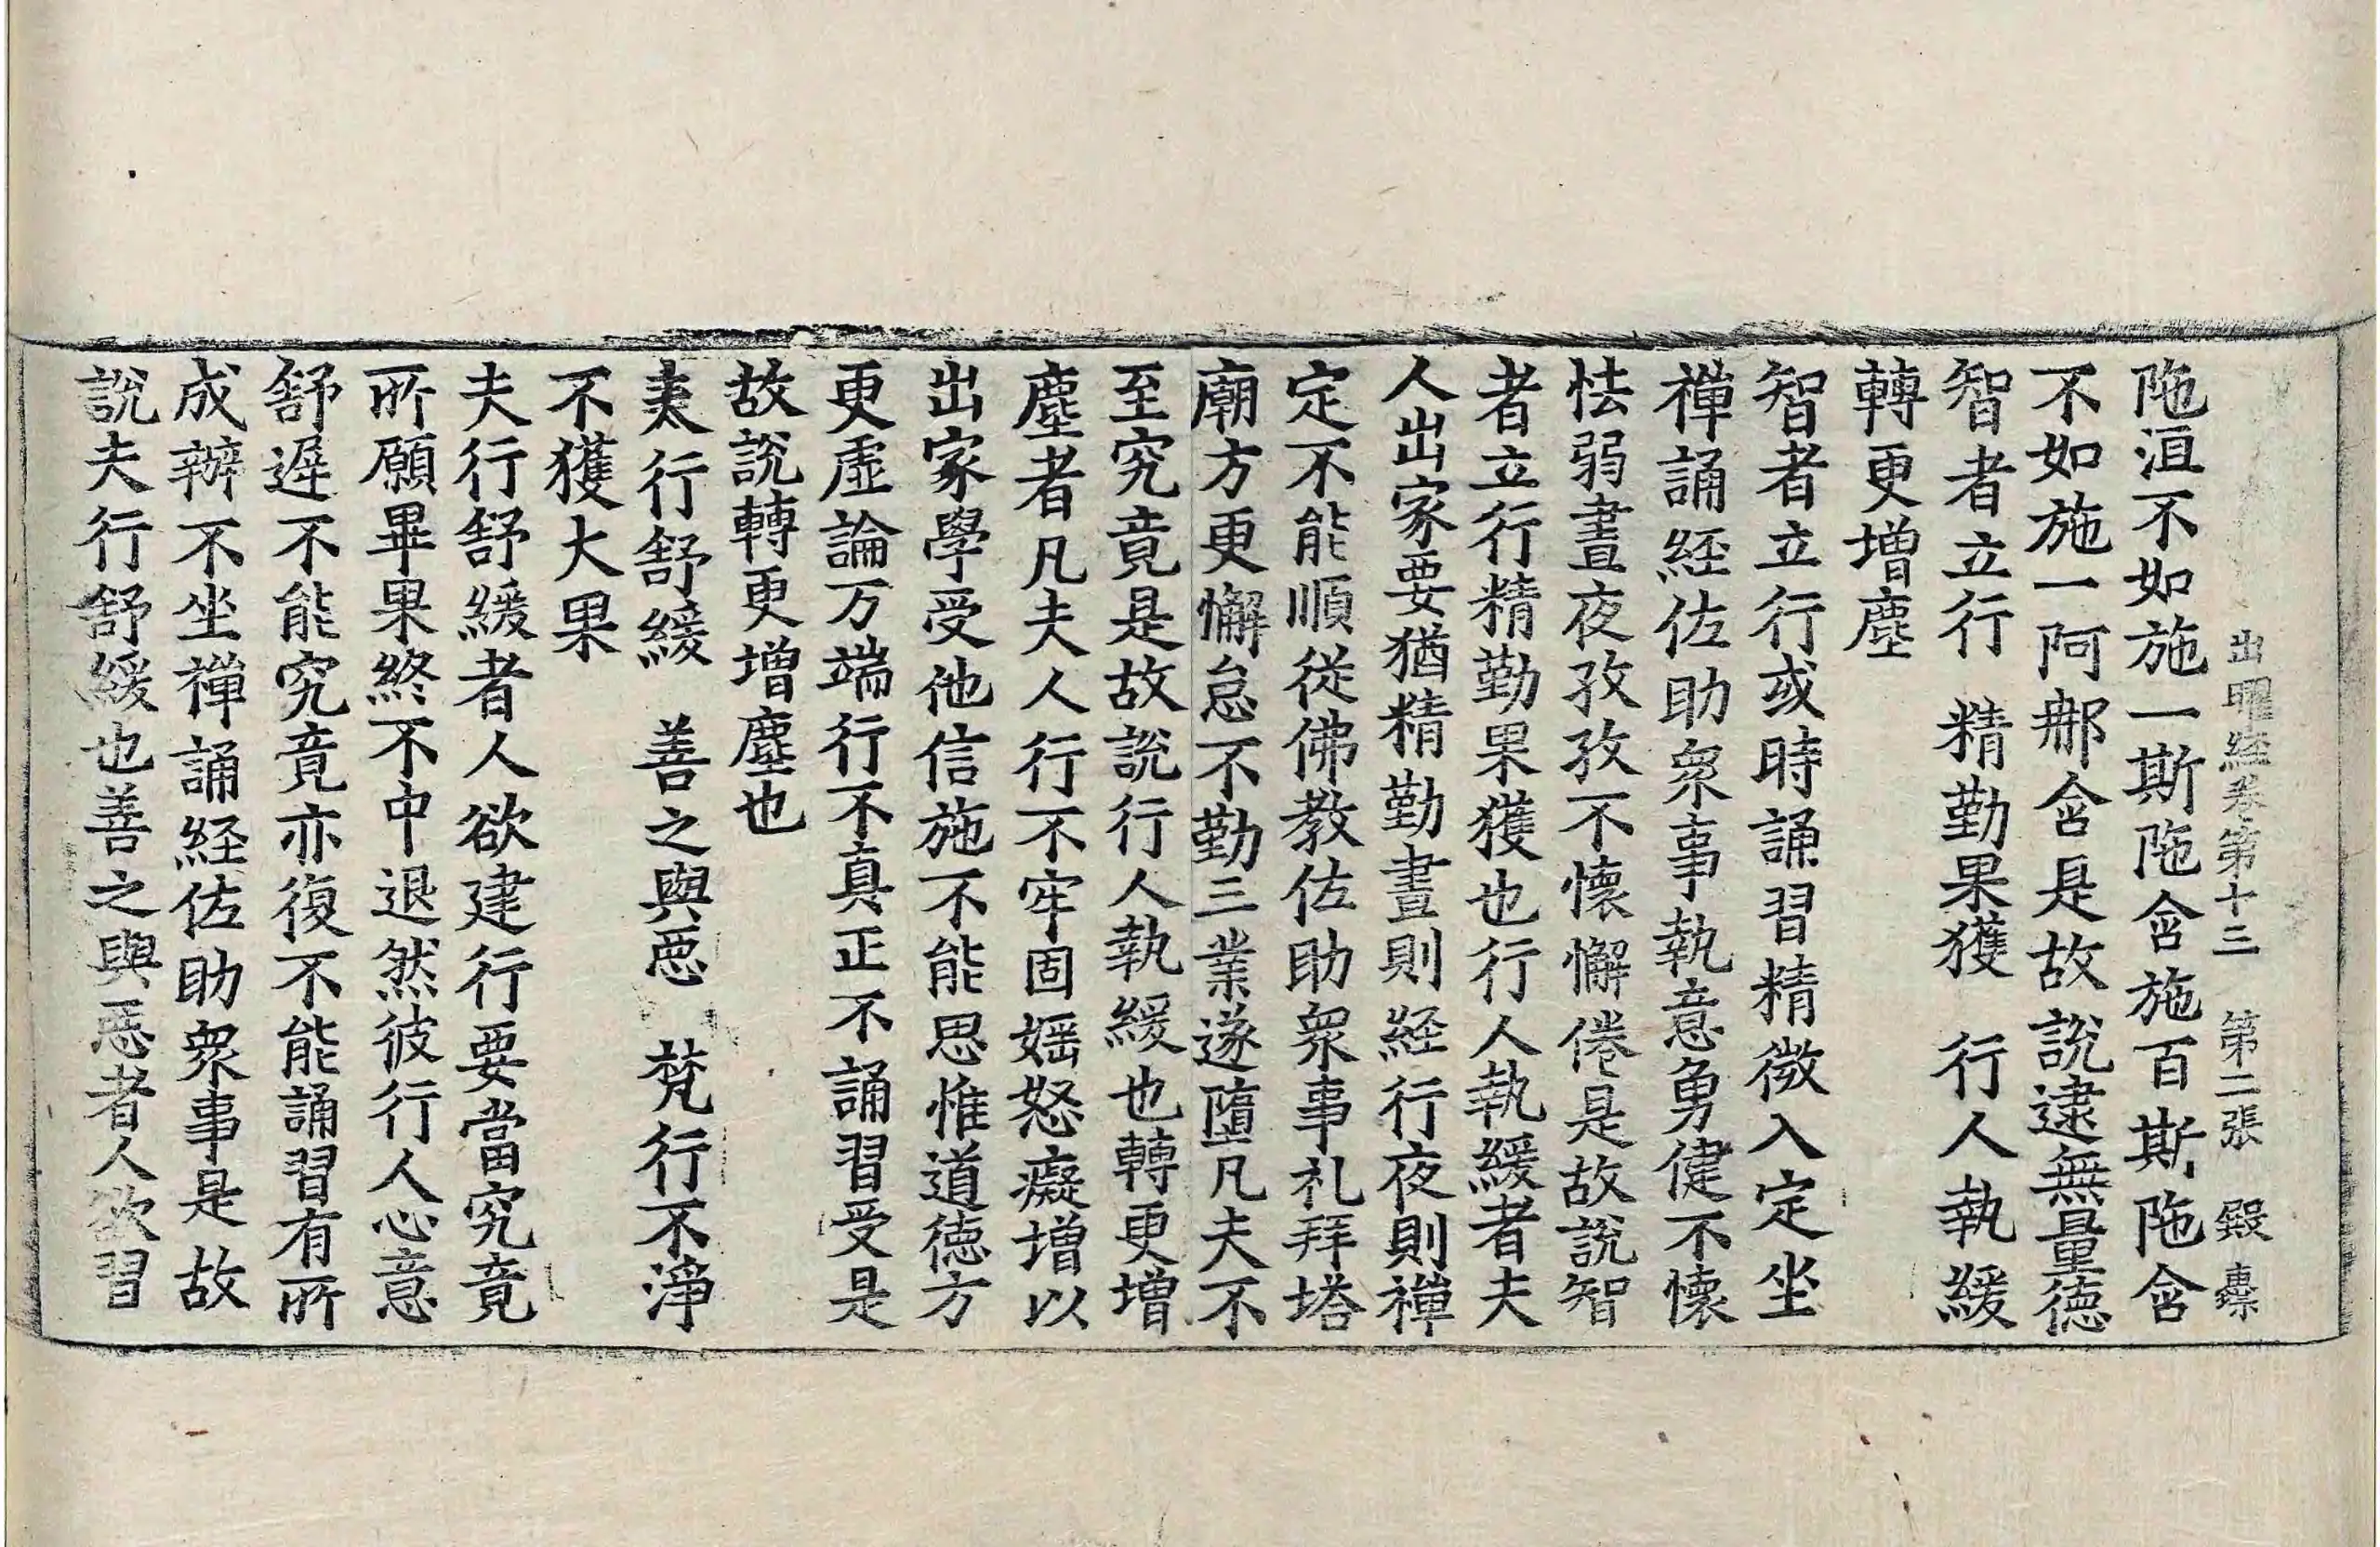 出曜経卷第十三　第二張　殿
陁洹不如施一斯陁含施百斯陁含
不如施一阿那含是故說逮無量徳
智者立行　精勤果獲　行人執緩
轉更增塵
智者立行或時誦習精微入定坐
禅誦経佐助衆事執意勇健不懷
怯弱晝夜孜孜不懷懈倦是故說智
者立行精勤果獲也行人執緩者夫
人出家要猶精勤晝則経行夜則禅
定不能順從佛教佐助衆事礼拜塔
廟方更懈怠不勤三業遂墮凡夫不
至究竟是故說行人執緩也轉更增
塵者凡夫人行不牢固婬怒癡增以
出家學受他信施不能思惟道徳方
更虛論万端行不真正不誦習受是
故說轉更增塵也
夫行舒緩　善之與惡　梵行不淨
不獲大果
夫行舒緩者人欲建行要當究竟
所願畢果終不中退然彼行人心意
舒遲不能究竟亦復不能誦習有所
成辦不坐禅誦経佐助衆事是故
說夫行舒緩也善之與惡者人欲習